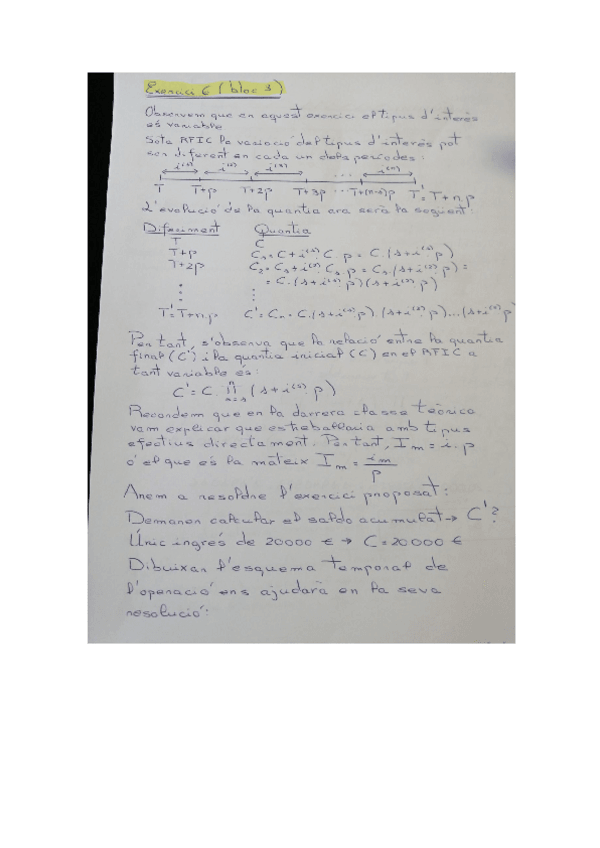 Exercici 6 (bloc 3)
Observem que en aquest exercici el tipus d'interès
és variable
Sota RFIC la variació del tipus d'interès pot
ser diferent en cada un dels períodes:
i⁽¹⁾ i⁽²⁾ i⁽³⁾ ... i⁽ⁿ⁾
T T+p T+2p T+3p ... T+(n-1)p T'=T+n.p
L'evolució de la quantia ara serà la seguent:
Diferiment Quantia
T C
T+p C₁=C+i⁽¹⁾.C.p = C.(1+i⁽¹⁾.p)
T+2p C₂=C₁+i⁽²⁾.C₁.p = C₁.(1+i⁽²⁾.p) =
= C.(1+i⁽¹⁾.p)(1+i⁽²⁾.p)
⋮ ⋮
T'=T+n.p C'=Cₙ= C.(1+i⁽¹⁾.p).(1+i⁽²⁾.p)...(1+i⁽ⁿ⁾.p)
Per tant, s'observa que la relació entre la quantia
final (C') i la quantia inicial (C) en el RFIC a
tant variable és:
Recordem que en la darrera classe teòrica
vam explicar que es treballaria amb tipus
efectius directament. Per tant, Iₘ = i.p
o el que és la mateix Iₘ = iₘ/p
Anem a resoldre l'exercici proposat:
Demanen calcular el saldo acumulat → C'?
Únic ingrés de 20000 € → C=20000 €
Dibuixar l'esquema temporal de
l'operació ens ajudarà en la seva
resolució: